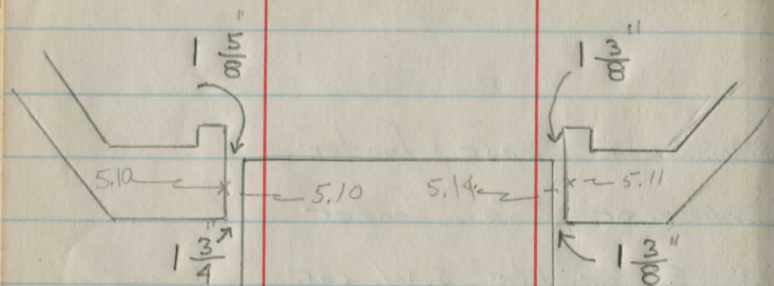 1 5/8" 1 3/8"
5.10 5.10 5.14 5.11
1 3/4" 1 3/8"